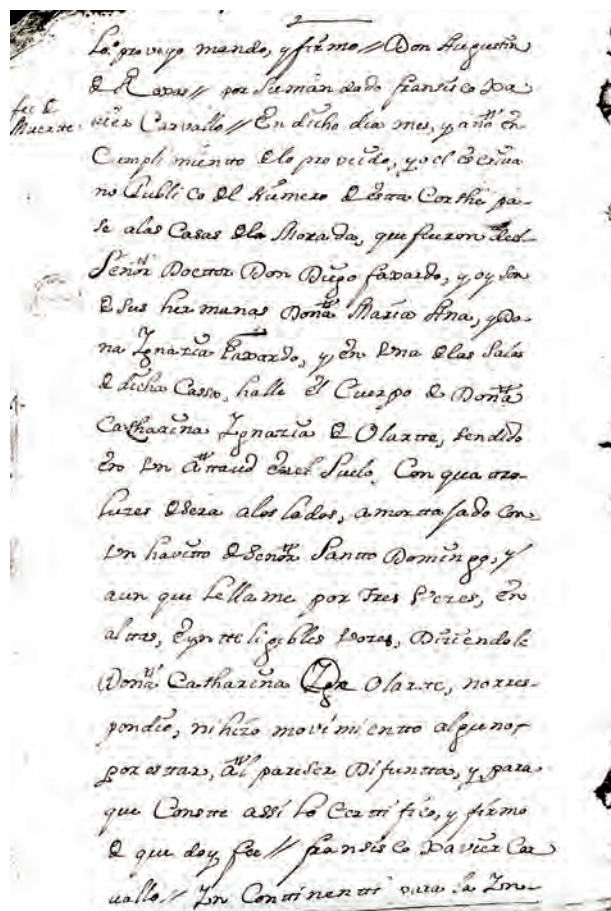 2
lo proveyo mando, y firmo // Don Augustin
de Roxas // por su mandado fransisco Xa
fee de Muerte.
vier Carvallo // En dicho dia mes, y año en
Cumplimientto de lo proveido, yo el escriva
no Publico del Número de esta Corthe pa-
se a las Casas de la Morada, que fueron del
Señor Docttor Don Diego faxardo, y oy son
de sus hermanas Doña María Ana, y Do-
ña Ygnacia Faxardo, y en una de las salas
de dicha Cassa, halle el Cuerpo de Doña
Catharina Ygnacia de Olartte, tendido
en un Attaud en el suelo, Con quattro
luzes de sera a los lados, amorttajado con
un havitto de Señor Santto Domingo, y
aun que le llame por Tres Vezes, en
alttas, e yntteligibles vozes, Diziendole
Doña Catharina Ygn Olartte, no rres-
pondio, ni hizo movimientto alguno,
por esttar, Al pareser Difuntta, y para
que Constte assi lo Certtifico, y firmo
de que doy fee // fransisco Xavier Car
vallo // Yn Conttinentti para la Yn-